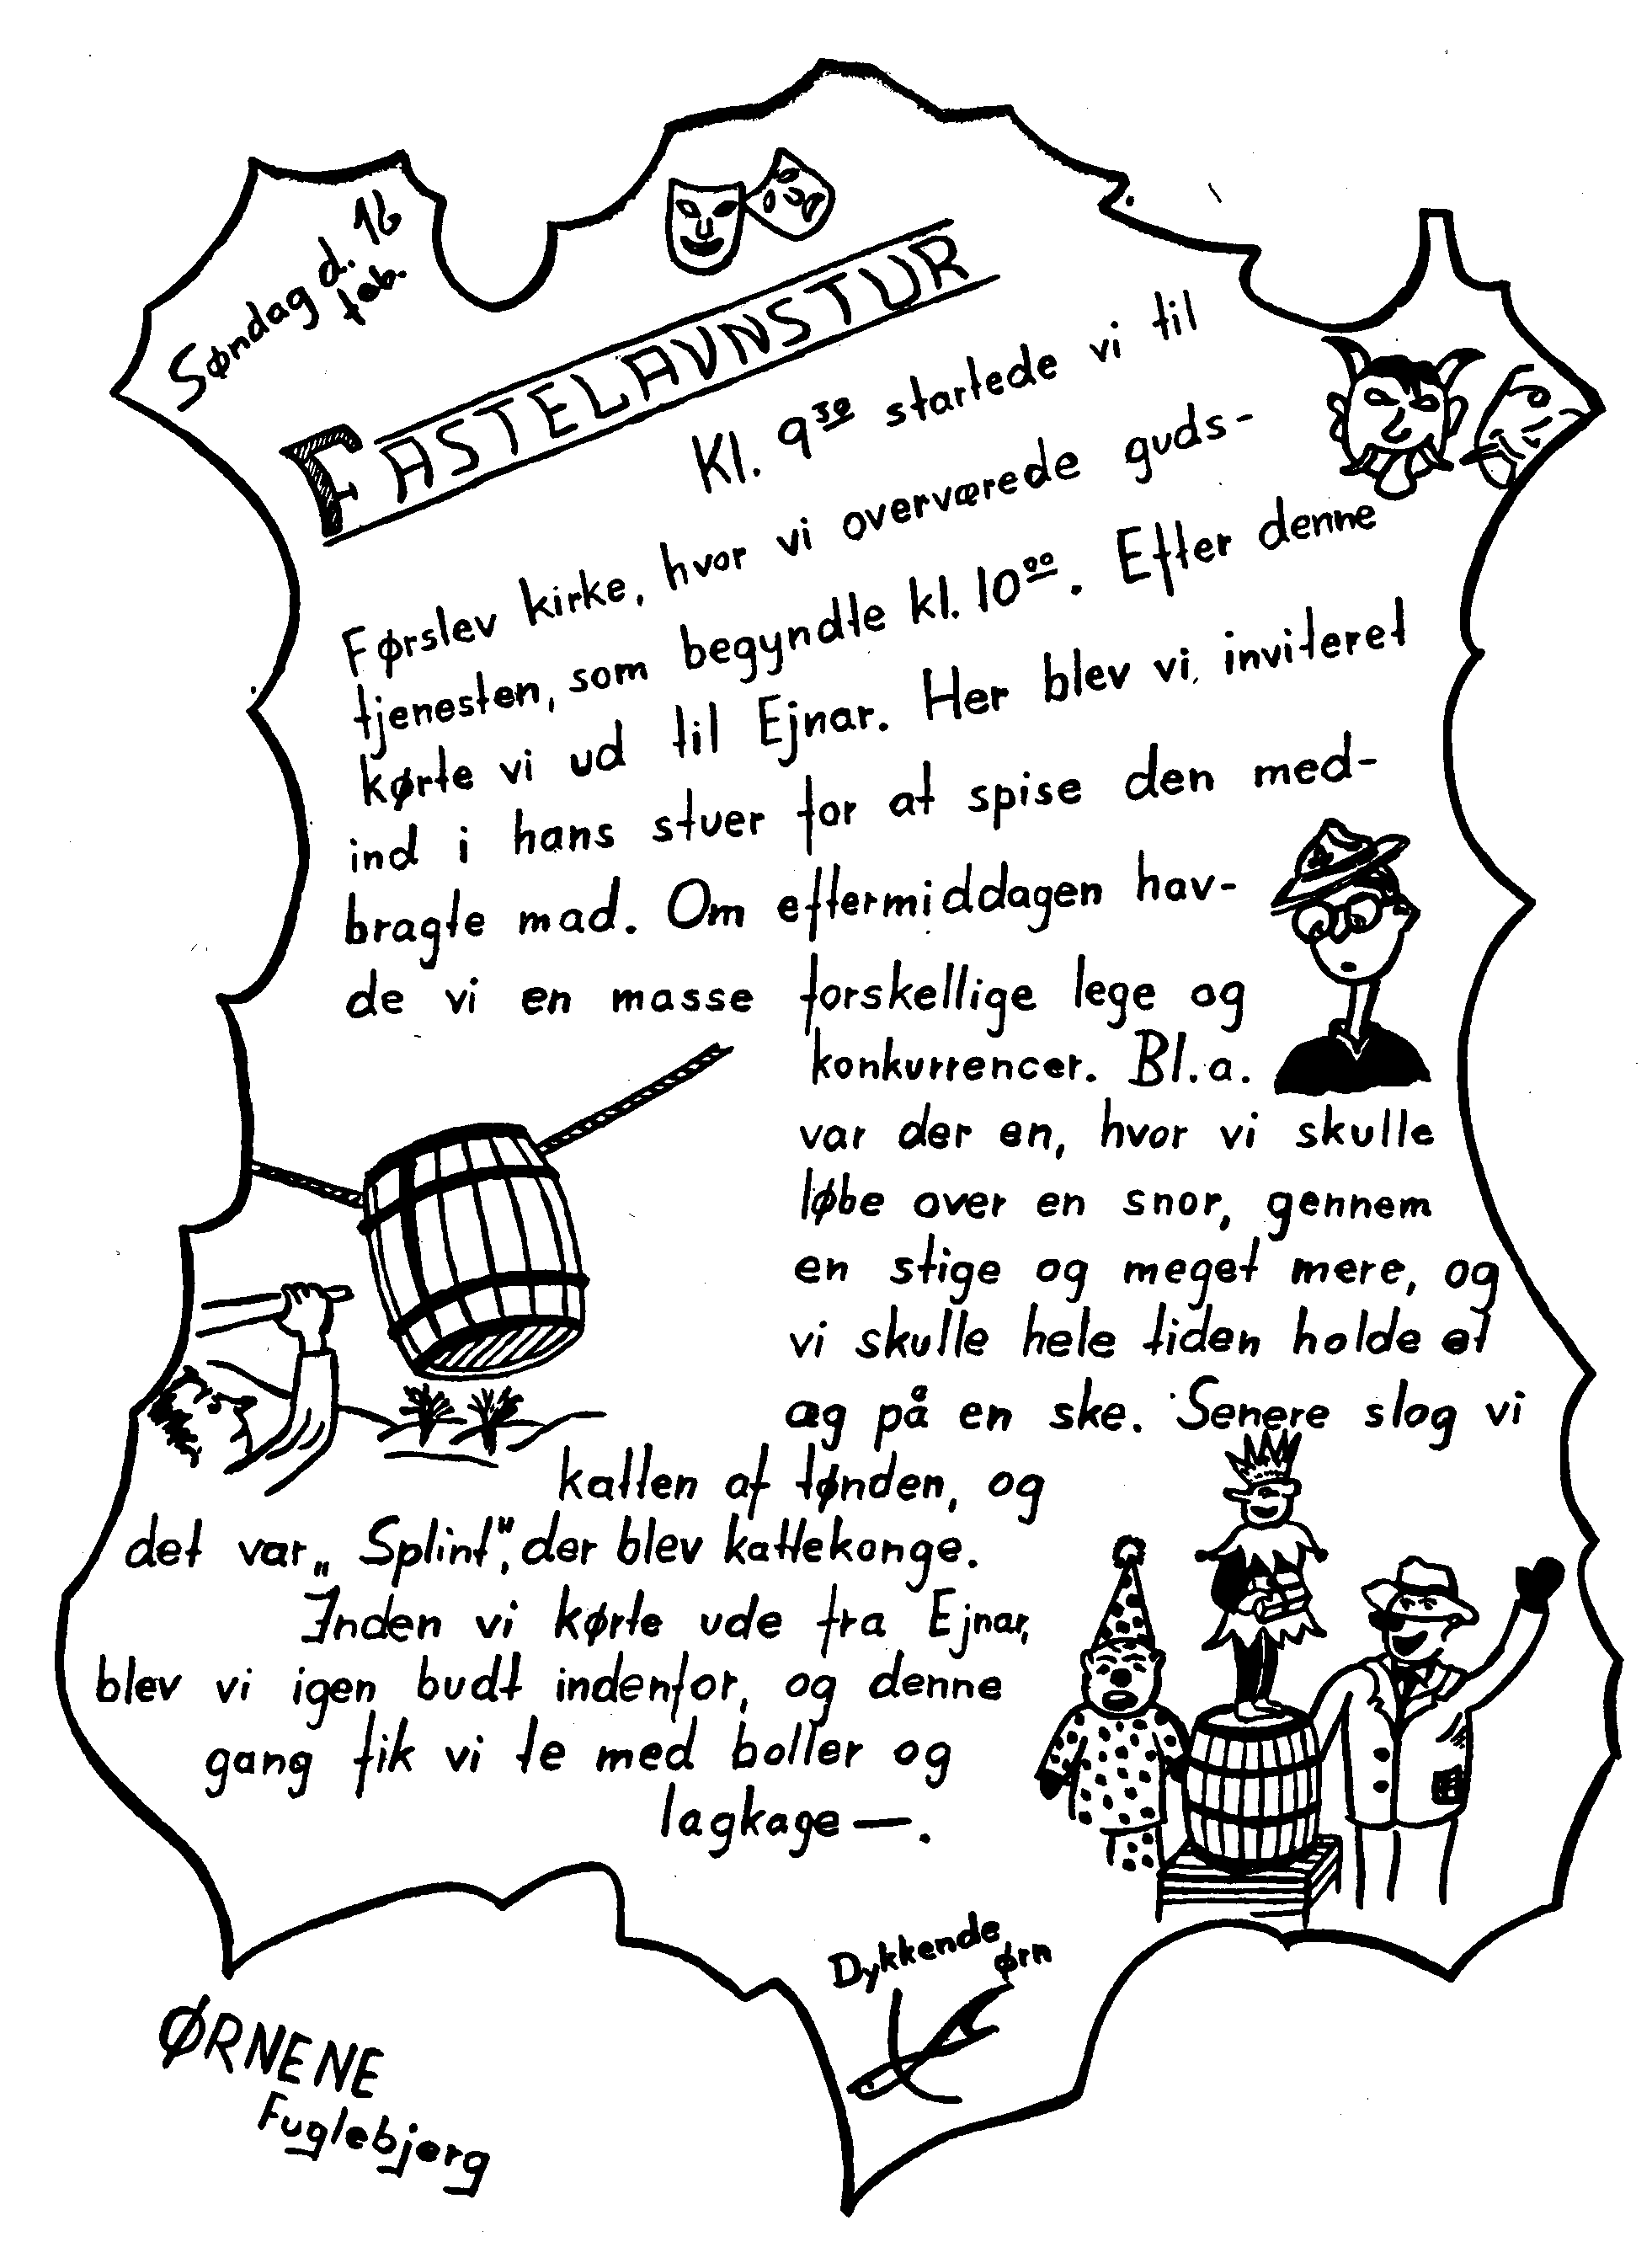 Søndag d. 16
feb.
FASTELAVNSTUR
Kl. 9³⁰ startede vi til
Førslev kirke, hvor vi overværede guds-
tjenesten, som begyndte kl. 10⁰⁰. Efter denne
kørte vi ud til Ejnar. Her blev vi inviteret
ind i hans stuer for at spise den med-
bragte mad. Om eftermiddagen hav-
de vi en masse forskellige lege og
konkurrencer. Bl.a.
var der en, hvor vi skulle
løbe over en snor, gennem
en stige og meget mere, og
vi skulle hele tiden holde et
æg på en ske. Senere slog vi
katten af tønden, og
det var „Splint“, der blev kattekonge.
Inden vi kørte ude fra Ejnar,
blev vi igen budt indenfor, og denne
gang fik vi te med boller og
lagkage —.
Dykkende
ørn
ØRNENE
Fuglebjerg